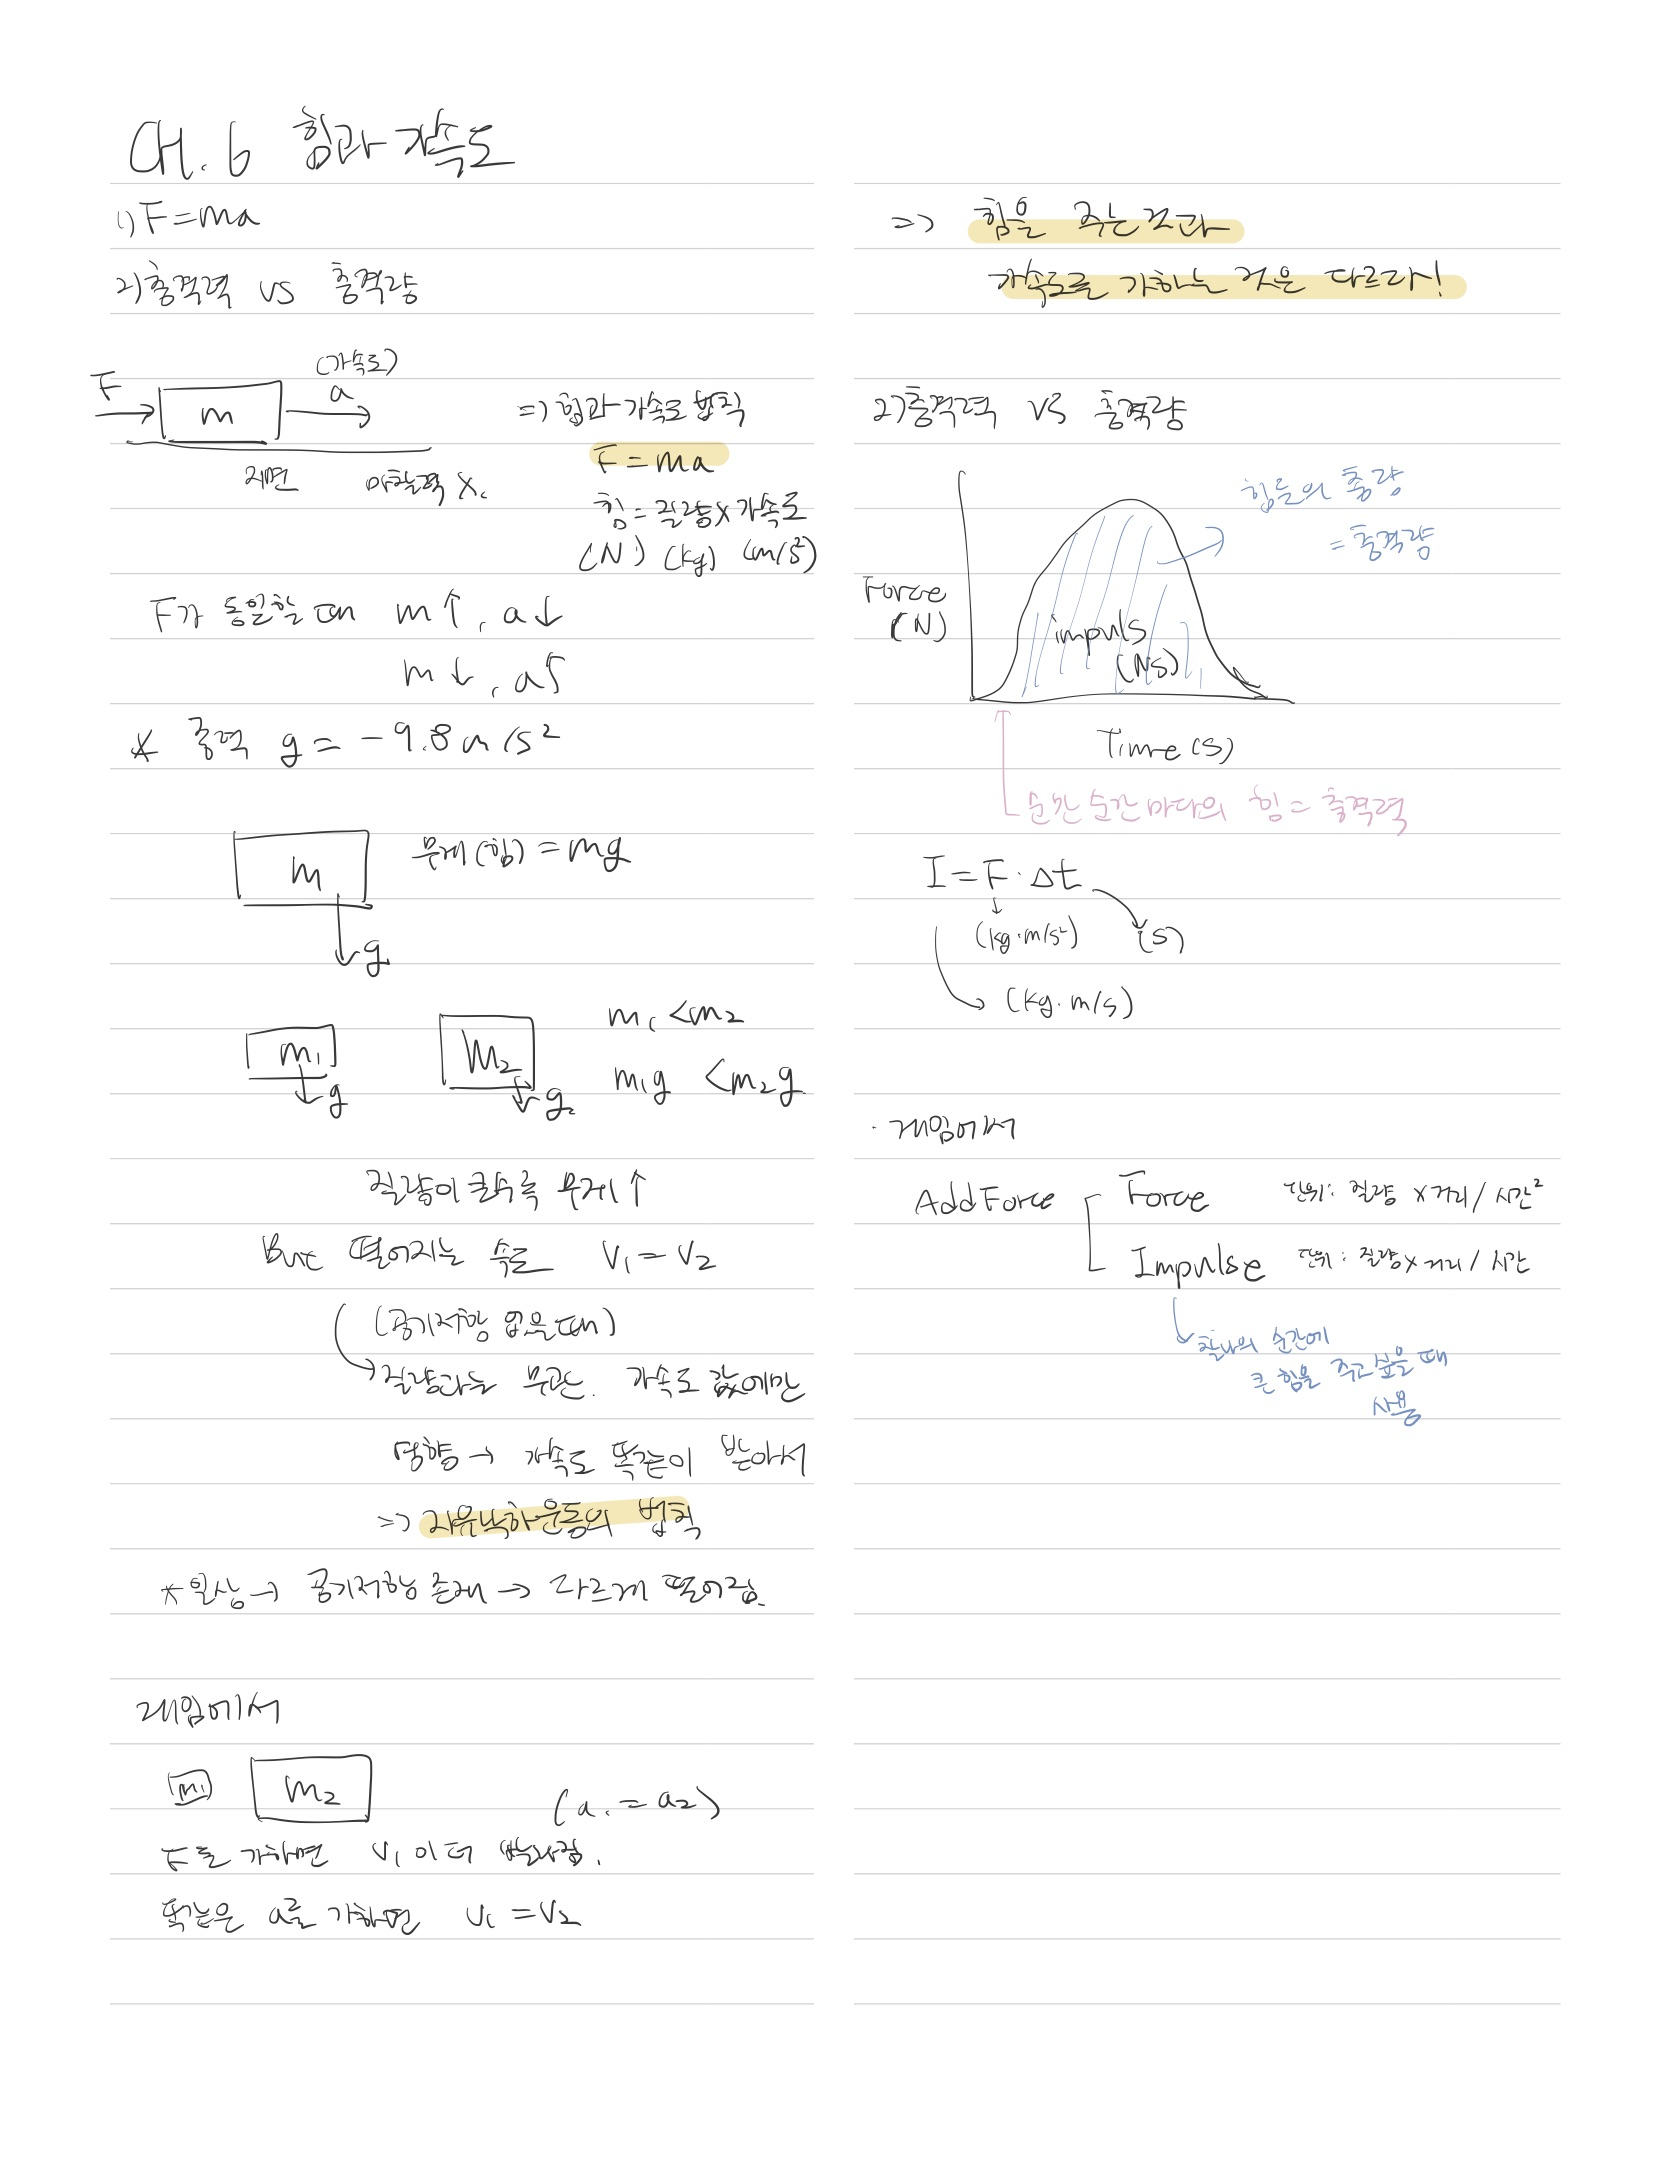 CH. 6 힘과 가속도
1) F=ma
2) 충격력 vs 충격량
(가속도)
F m a
지면 마찰력 X.
=> 힘과 가속도 법칙
F = ma
힘 = 질량 x 가속도
(N) (kg) (m/s²)
F가 동일할 때 m↑, a↓
m↓, a↑
* 중력 g = -9.8m/s²
m 무게(힘) = mg
g
m₁ m₂ m₁ < m₂
g g m₁g < m₂g
질량이 클수록 무게↑
But 떨어지는 속도 V₁ = V₂
(공기저항 없을 때)
질량과는 무관. 가속도 값에만
영향 → 가속도 똑같이 받아서
=> 자유낙하운동의 법칙
* 일상 → 공기저항 존재 → 다르게 떨어짐.
게임에서
m₁ m₂ (a₁ = a₂)
F를 가하면 V₁이 더 빨라짐.
똑같은 a를 가하면 V₁ = V₂
=> 힘을 주는 것과
가속도를 가하는 것은 다르다!
2) 충격력 vs 충격량
힘들의 총량
= 충격량
Force
(N)
impuls
(Ns)
Time (s)
순간 순간 마다의 힘 = 충격력
I = F · Δt
(kg·m/s²) (s)
(kg·m/s)
· 게임에서
AddForce Force 단위: 질량 x 거리 / 시간²
Impulse 단위: 질량 x 거리 / 시간
찰나의 순간에
큰 힘을 주고 싶을 때
사용